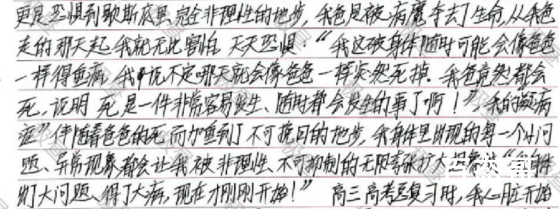 更是恐惧到歇斯底里、完全非理性的地步，我爸是被病魔夺去了生命，从我爸
走的那天起，我就无比害怕、天天恐惧：“我这破身体随时可能会像爸爸
一样得重病，我说不定哪天就会像爸爸一样突然死掉。我爸竟然都会
死，证明 死是一件非常容易发生、随时都会发生的事了啊！”我的疑病
症“伴随着爸爸的死而加重到了不可挽回的地步，我身体里出现的每一个小问
题、异常现象都会让我被非理性、不可抑制的无限
们大问题、得了大病，现在才刚刚开始！” 高三高考总复习时，我心脏开始